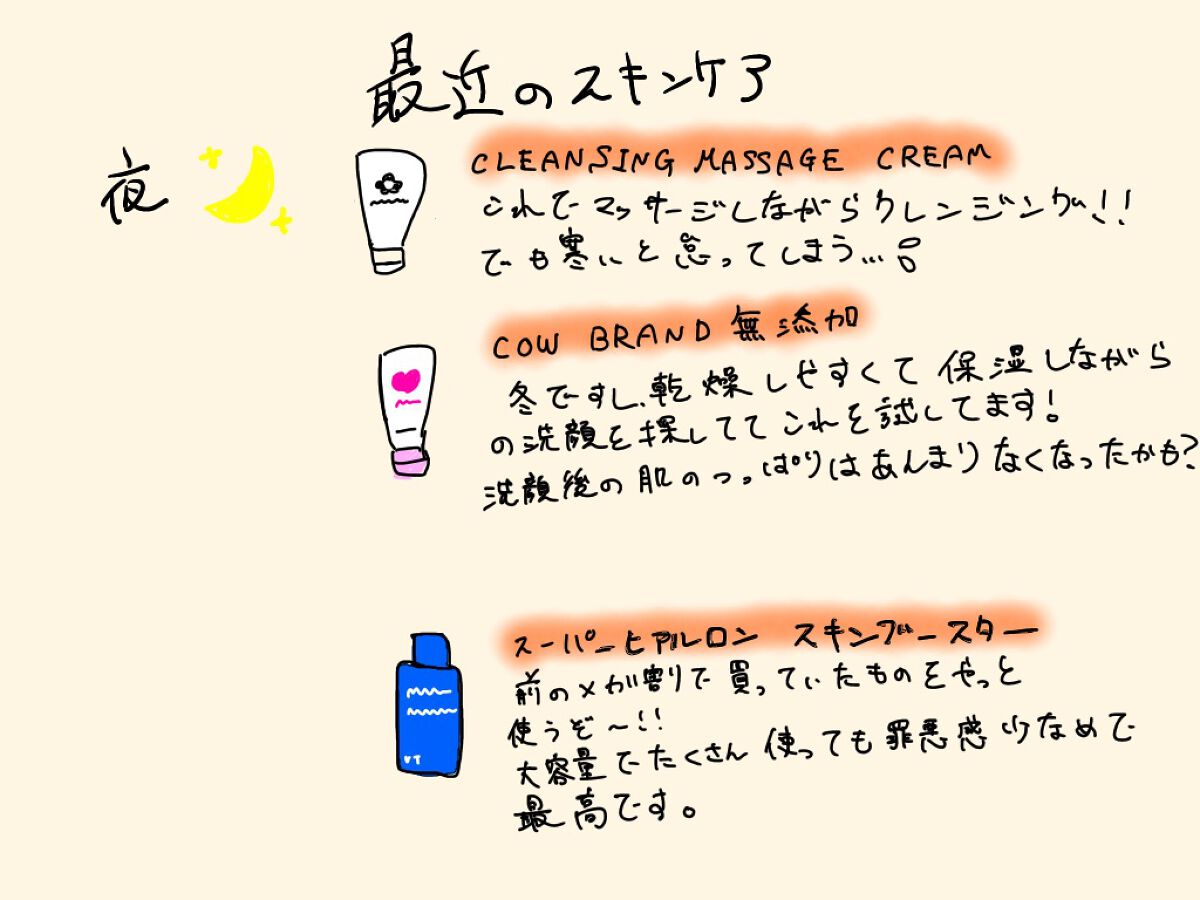 最近のスキンケア
夜
CLEANSING MASSAGE CREAM
これでマッサージしながらクレンジング!!
でも寒いと怠ってしまう...
COW BRAND 無添加
冬ですし、乾燥しやすくて保湿しながら
の洗顔を探しててこれを試してます!
洗顔後の肌のつっぱりはあんまりなくなったかも?
スーパーヒアルロン スキンブースター
前のメガ割りで買っていたものをやっと
使うぞ〜!!
大容量でたくさん使っても罪悪感少なめで
最高です。
VT